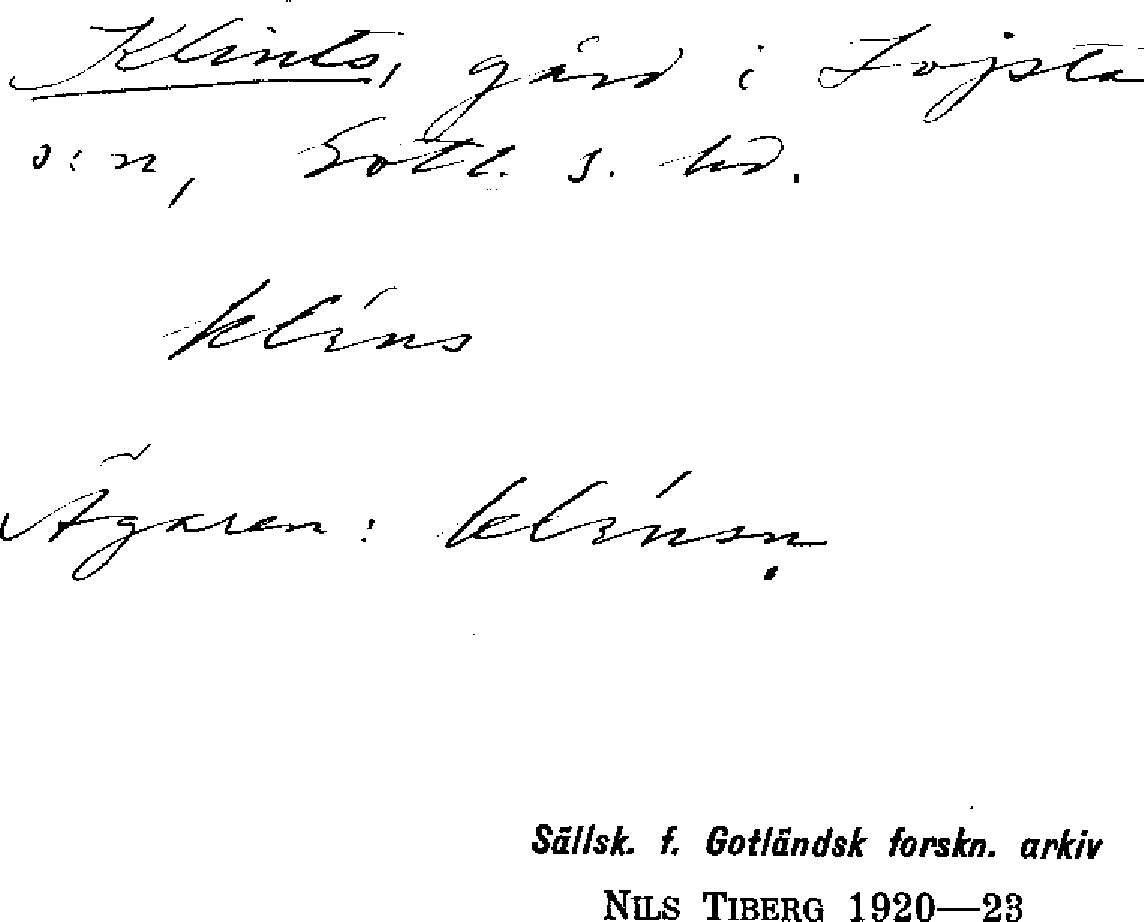 Klints, gård i Lojsta
s:n, Gotl. s. hd.
klíns
Ägaren: klínsṇ
Sällsk. f. Gotländsk forskn. arkiv
NILS TIBERG 1920—23